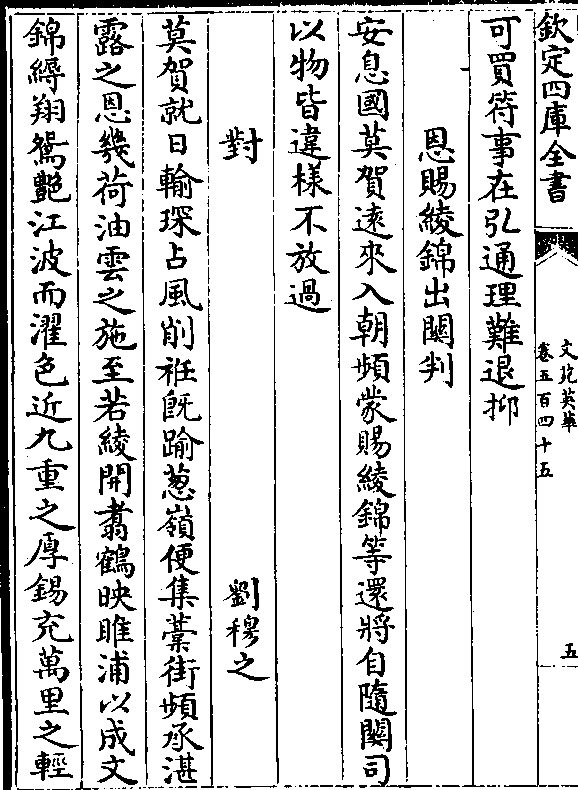 欽定四庫全書
文苑英華
卷五百四十五
五
可買符事在弘通理難退抑
恩賜綾錦出關判
安息國莫賀遠來入朝頻蒙賜綾錦等還將自隨關司
以物皆違樣不放過
對
劉穆之
莫賀就日輸琛占風削袵旣踰蔥嶺便集藁街頻承湛
露之恩幾荷油雲之施至若綾開翥鶴映睢浦以成文
錦縟翔鴛艷江波而濯色近九重之厚錫充萬里之輕